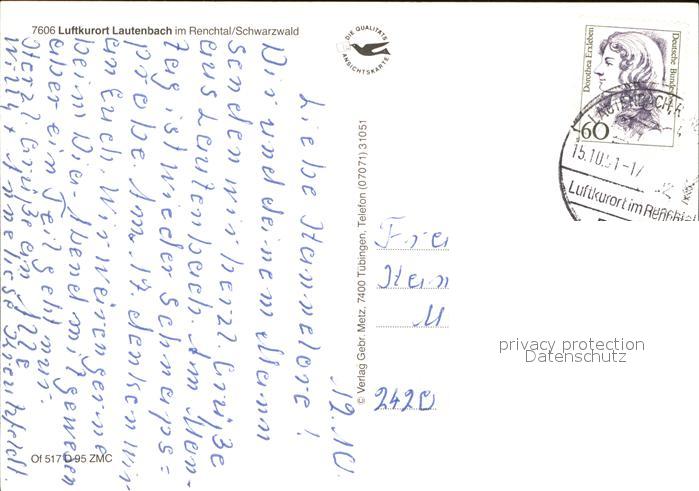 7606 Luftkurort Lautenbach im Renchtal/Schwarzwald
DIE QUALITÄTS
ANSICHTSKARTE
Dorothea Erxleben
Deutsche Bundes
60
LAUTENBACH, R
15.10.91-17
Luftkurort im Renchtal
12.10.
Liebe Hannelore!
Dir und deinem Mann
senden wir herzl. Grüße
aus Lautenbach. Am Mon-
tag ist wieder Schnaps=
probe. Am. 17. denken wir
an Euch. Wir wären gerne
beim Abend mit gewesen
aber ein Teil geht nur.
Herzl. Grüße an alle
Willy + Anneliese Kreutzfeldt.
© Verlag Gebr. Metz, 7400 Tübingen, Telefon (07071) 31051
Frau
Han
2420
privacy protection
Datenschutz
Of 517 D 95 ZMC